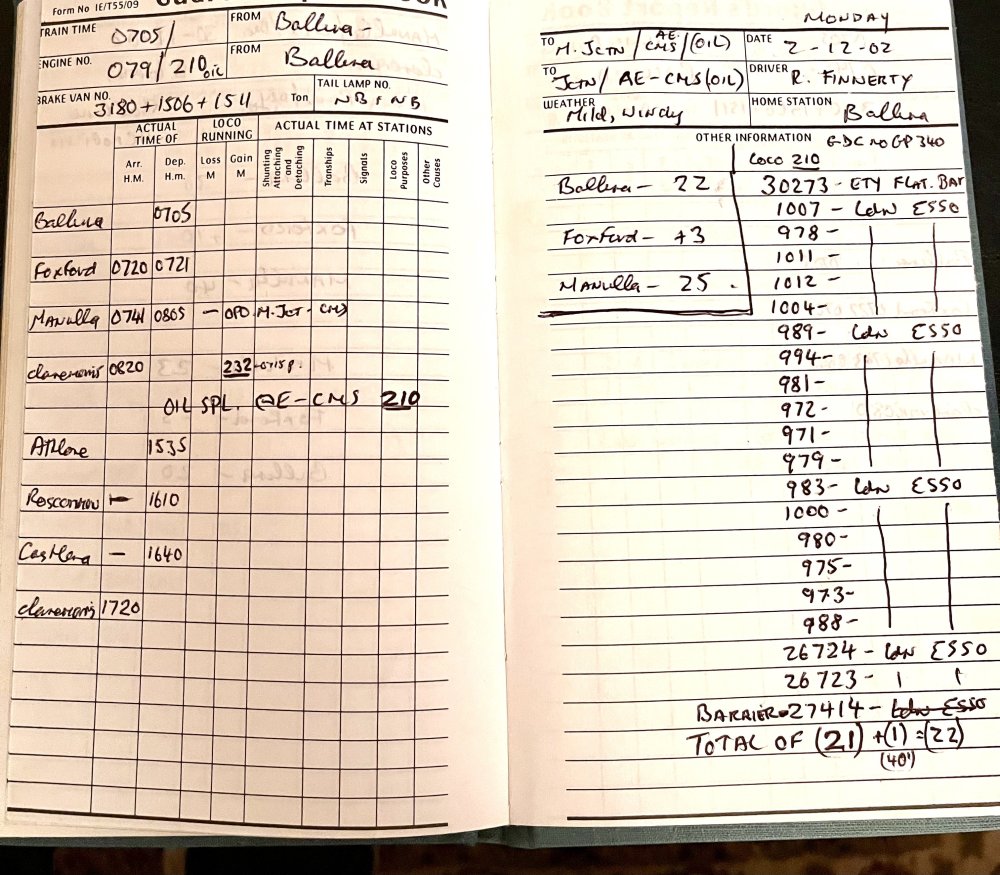 Form No IE/T55/09
TRAIN TIME 0705/ FROM Ballina -
ENGINE NO. 079/210 OIL FROM Ballina
BRAKE VAN NO. 3180+1506+1511 Ton TAIL LAMP NO. NB1NB
ACTUAL TIME OF LOCO RUNNING ACTUAL TIME AT STATIONS
Arr. H.M. Dep. H.m. Loss M Gain M Shunting Attaching and Detaching Tranships Signals Loco Purposes Other Causes
Ballina 0705
Foxford 0720 0721
Manulla 0741 0805 - OPO M.JCT - CMS
claremorris 0820 232 -0715P.
OIL SPL. @E-CMS 210
Athlone 1535
Roscommon - 1610
Castlerea - 1640
claremorris 1720
MONDAY
TO M. JCTN / AE-CMS/(OIL) DATE 2-12-02
TO JCTN/ AE-CMS(OIL) DRIVER R. FINNERTY
WEATHER Mild, windy HOME STATION Ballina
OTHER INFORMATION GDC NO GP 340
Loco 210
Ballina - 22 30273 - ETY FLAT. BAR
1007 - Ldn ESSO
Foxford - +3 978 -
1011 -
Manulla - 25. 1012 -
1004 -
989 - Ldn ESSO
994 -
981 -
972 -
971 -
979 -
983 - Ldn ESSO
1000 -
980 -
975 -
973 -
988 -
26724 - Ldn ESSO
26723 -
BARRIER 27414 - Ldn ESSO
TOTAL OF (21) +(1) =(22)
(40')